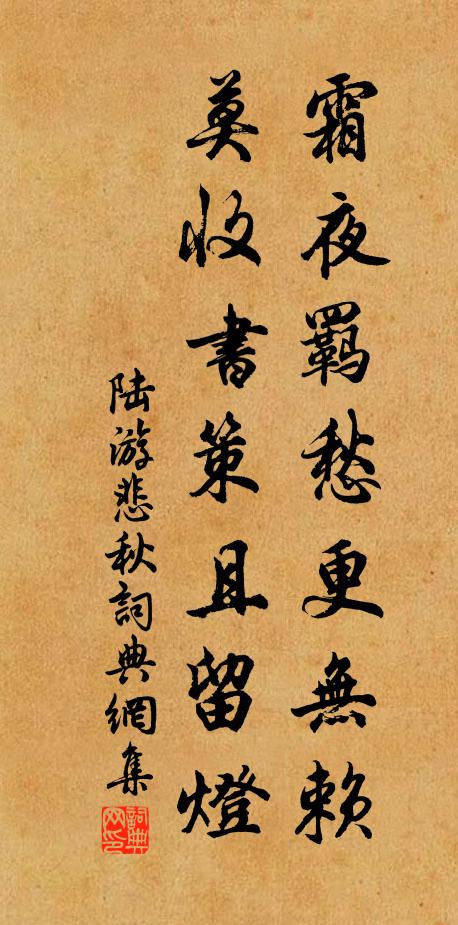 霜夜羈愁更無賴
莫收書策且留燈
陆游悲秋詞典網集
詞典网印